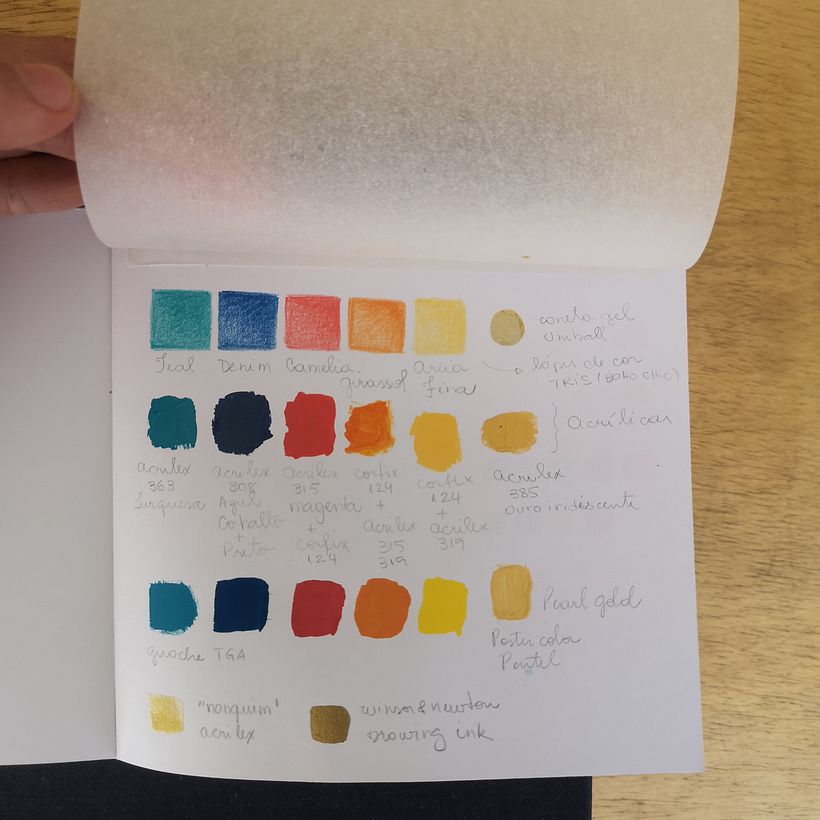 Teal Denim Camelia. girassol Areia fina
caneta gel
Umball
lápis de cor
TRIS (BOHO CHIC)
Acrílicas
acrilex
363
turquesa
acrilex
308
Azul
Cobalto
+
Preto
acrilex
315
magenta
+
corfix
124
corfix
124
+
acrilex
315
319
corfix
124
+
acrilex
319
acrilex
385
ouro iridescente
guache TGA
Pearl gold
Poster color
Pentel
"nanquim"
acrilex
winsor & newton
Drowing ink